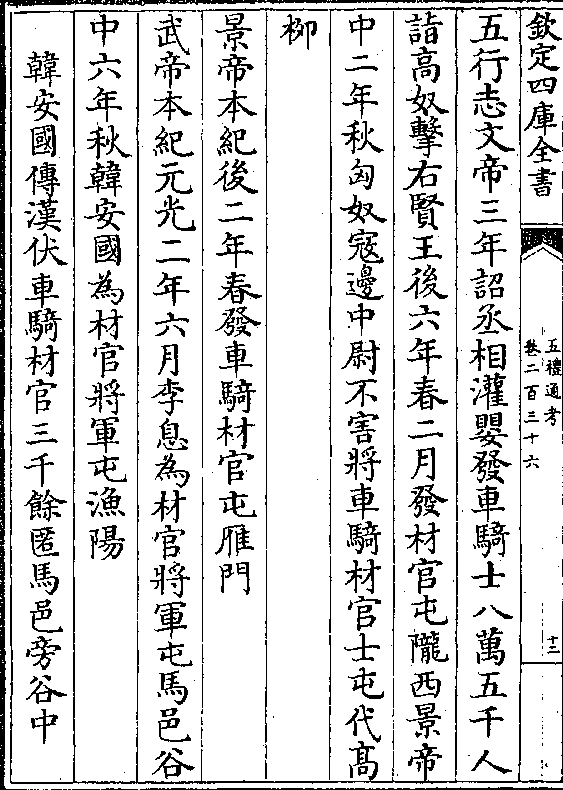 欽定四庫全書
五禮通考
卷二百三十六
十二
五行志文帝三年詔丞相灌嬰發車騎士八萬五千人
詣高奴擊右賢王後六年春二月發材官屯隴西景帝
中二年秋匈奴寇邊中尉不害將車騎材官士屯代高
栁
景帝本紀後二年春發車騎材官屯雁門
武帝本紀元光二年六月李息為材官將軍屯馬邑谷
中六年秋韓安國為材官將軍屯漁陽
韓安國傳漢伏車騎材官三千餘匿馬邑旁谷中